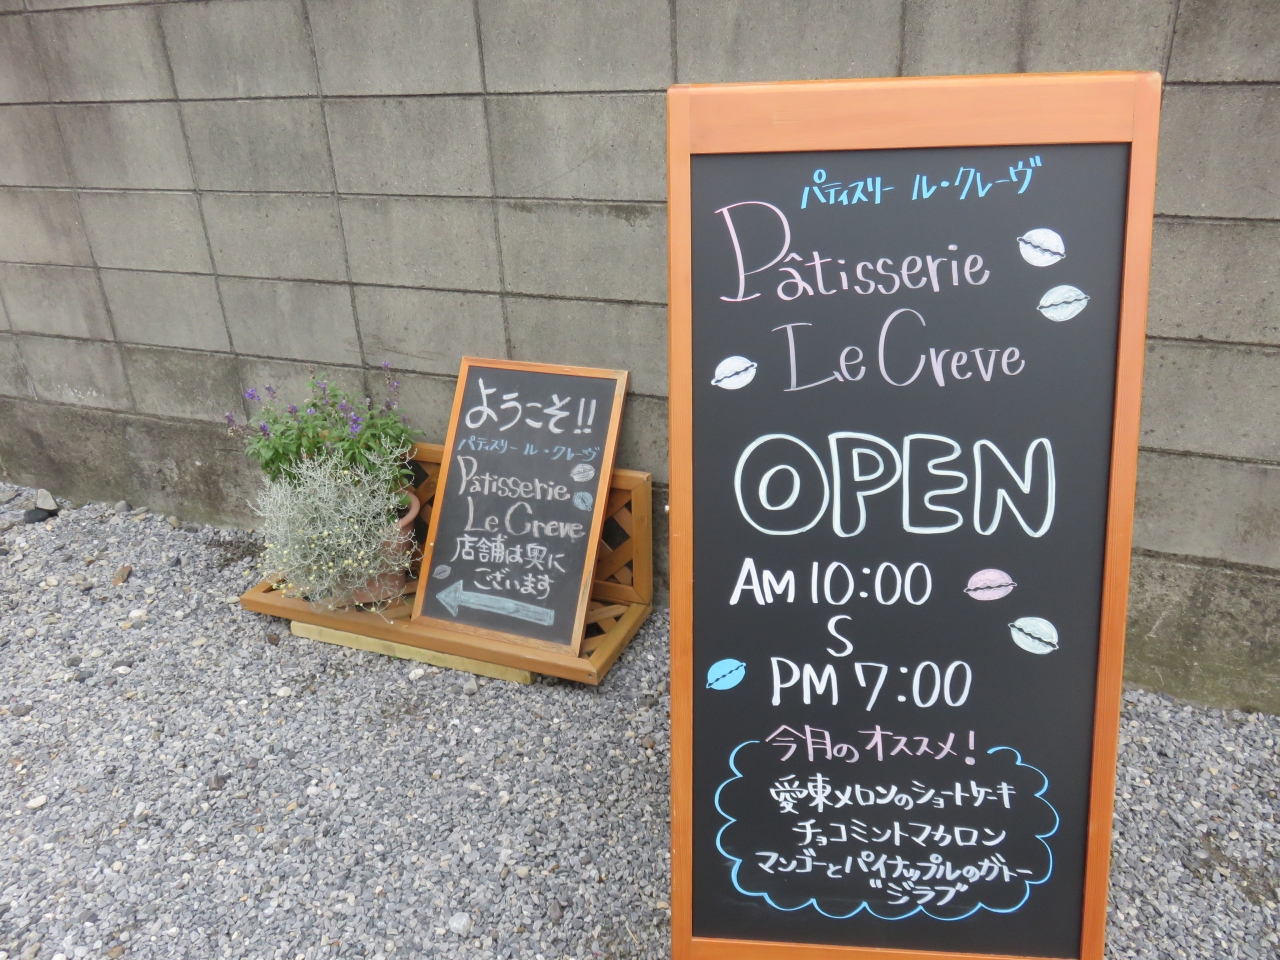 パティスリー ル・クレーヴ
Pâtisserie
Le Creve
OPEN
AM 10:00
S
PM 7:00
今月のオススメ!
愛東メロンのショートケーキ
チョコミントマカロン
マンゴーとパイナップルのガトー
"ジラフ"
ようこそ!!
パティスリー ル・クレーヴ
Pâtisserie
Le Creve
店舗は奥に
ございます